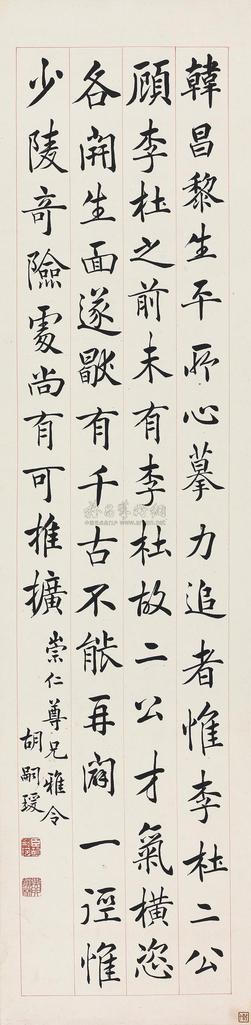 韓昌黎生平所心摹力追者惟李杜二公
顧李杜之前未有李杜故二公才氣橫恣
各開生面遂獨有千古不能再闢一徑惟
少陵奇險處尚有可推擴
崇仁尊兄雅令
胡嗣瑗